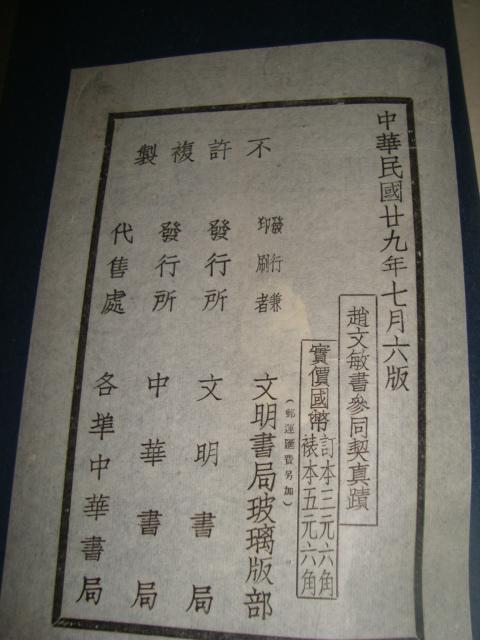 中華民國廿九年七月六版
趙文敏書參同契真蹟
實價國幣
訂本三元六角
裱本五元六角
(郵運匯費另加)
不許複製
發行兼
印刷者
文明書局玻璃版部
發行所 文明書局
發行所 中華書局
代售處 各埠中華書局